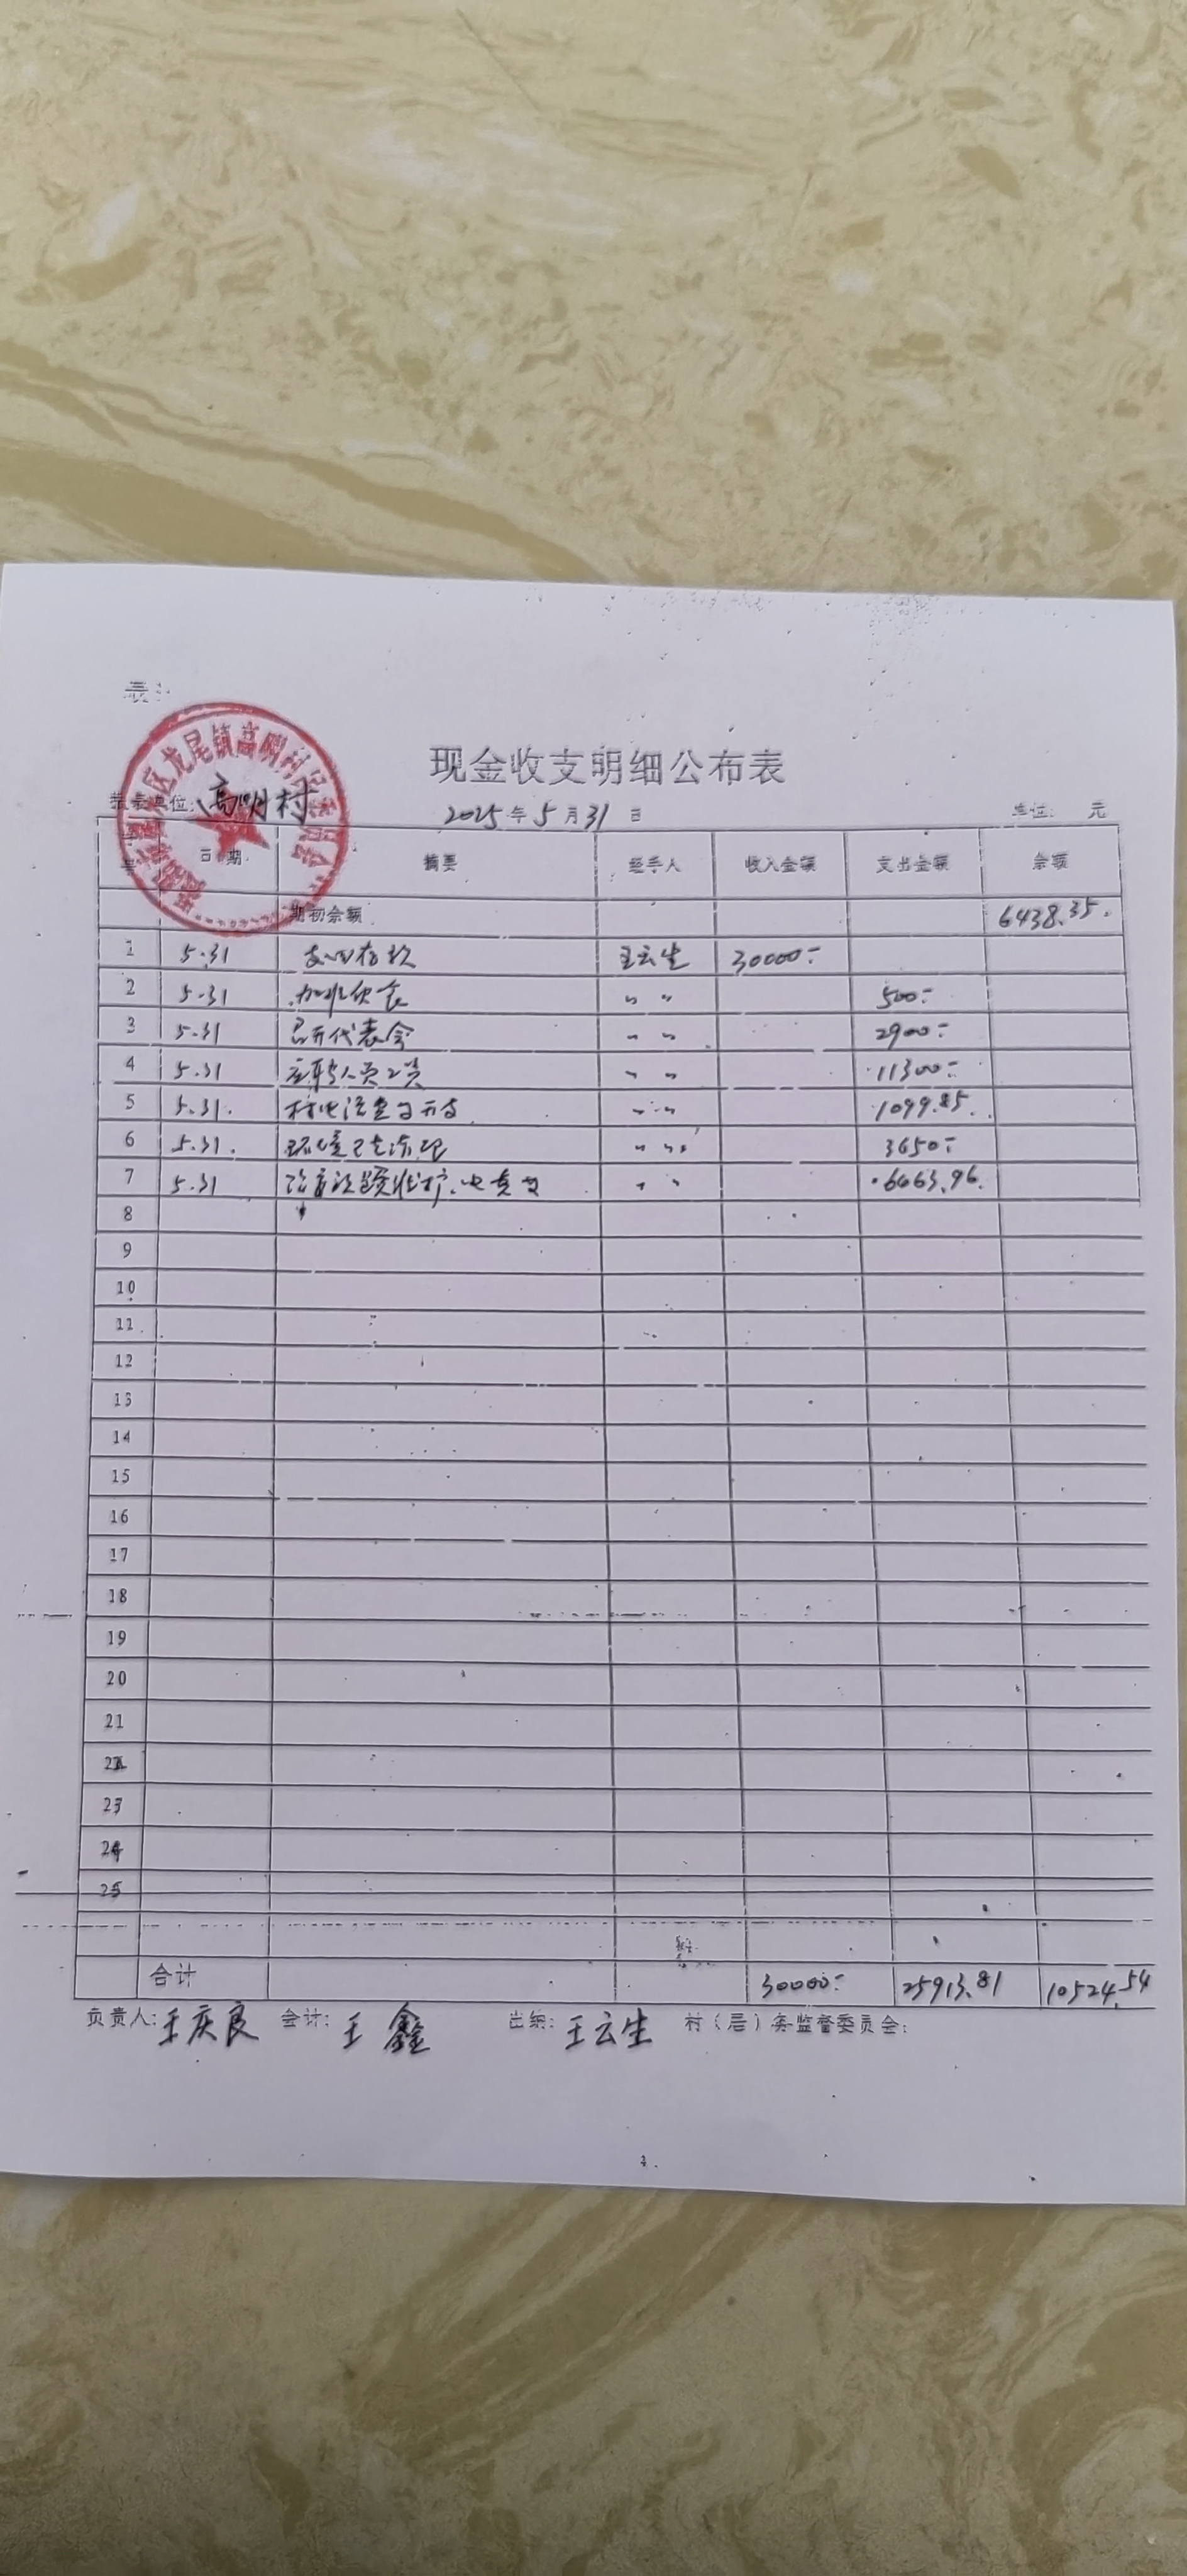 表
现金收支明细公布表
单位: 高明村 2025年5月31日 单位: 元
日期 摘要 经手人 收入金额 支出金额 余额
期初余额 6438.35
1 5.31 支回存款 王云生 30000.-
2 5.31 加班伙食 〃 〃 500.-
3 5.31 召开代表会 〃 〃 2900.-
4 5.31 应聘人员工资 〃 〃 11300.-
5 5.31 〃 〃 1099.85
6 5.31 〃 〃 3650.-
7 5.31 〃 〃 6463.96
8
9
10
11
12
13
14
15
16
17
18
19
20
21
22
23
24
25
合计 30000.- 25913.81 10524.54
负责人: 王庆良 会计: 王鑫 出纳: 王云生 村(居)务监督委员会: